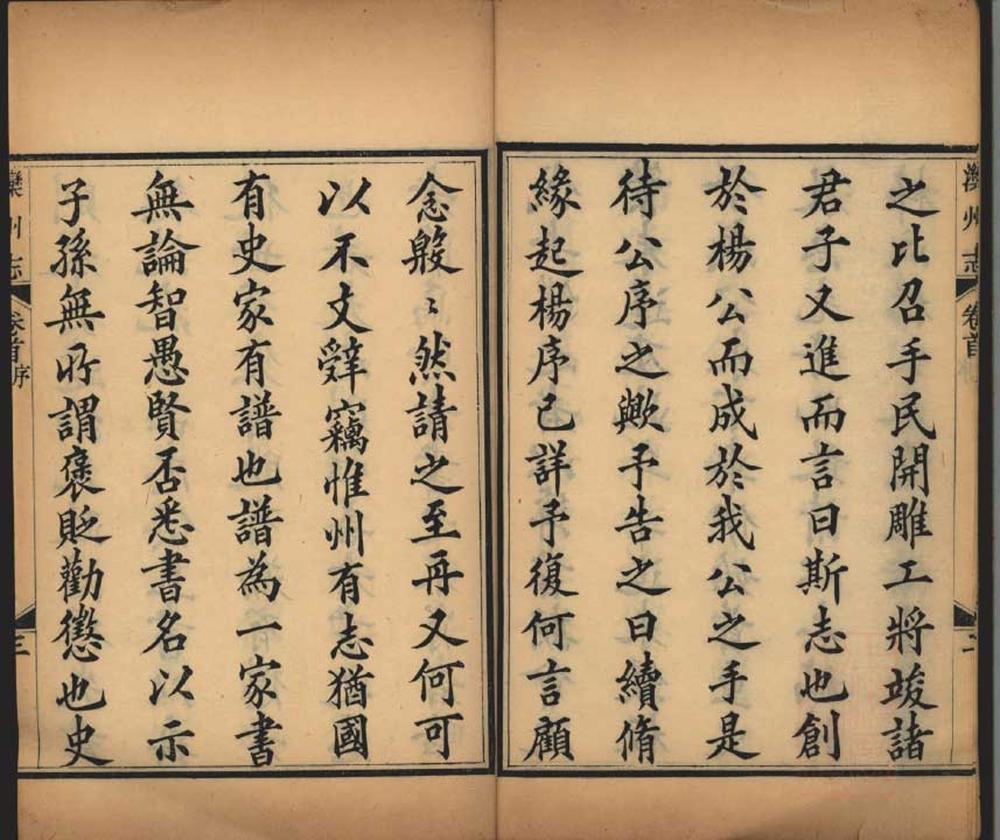 灤州志
卷首
二
之比召手民開雕工將竣諸
君子又進而言曰斯志也創
於楊公而成於我公之手是
待公序之歟予告之曰續脩
緣起楊序已詳予復何言顧
念殷〻然請之至再又何可
以不文辭竊惟州有志猶國
有史家有譜也譜為一家書
無論智愚賢否悉書名以示
子孫無所謂褒貶勸懲也史
灤州志
卷首序
三